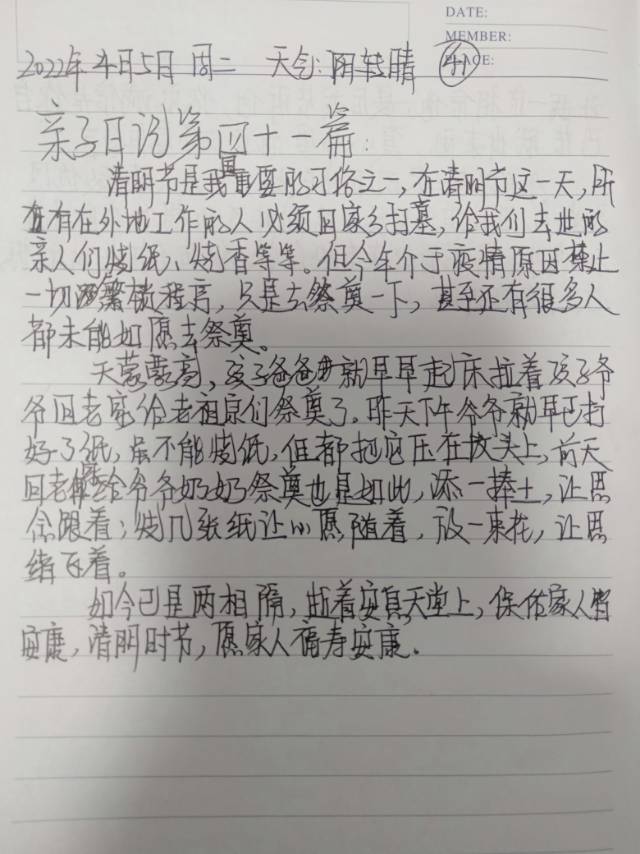 DATE:
MEMBER:
2022年4月5日 周二 天气:阴转晴 41
亲子日记第四十一篇:
清明节是我国重要的习俗之一,在清明节这一天,所
有在外地工作的人必须回家乡扫墓,给我们去世的
亲人们烧纸、烧香等等。但今年介于疫情原因禁止
一切繁锁程序,只是去祭奠一下,甚至还有很多人
都未能如愿去祭奠。
天蒙蒙亮,孩子爸爸就早早起床拉着孩子爷
爷回老家给老祖宗们祭奠了。昨天下午爷爷就早已打
好了纸,虽不能烧纸,但都把它压在坟头上,前天
回老家给爷爷奶奶祭奠也是如此,添一捧土,让思
念跟着;烧几张纸让心愿随着,放一束花,让思
绪飞着。
如今已是两相隔,逝着安息天堂上,保佑家人皆
安康,清明时节,愿家人福寿安康.